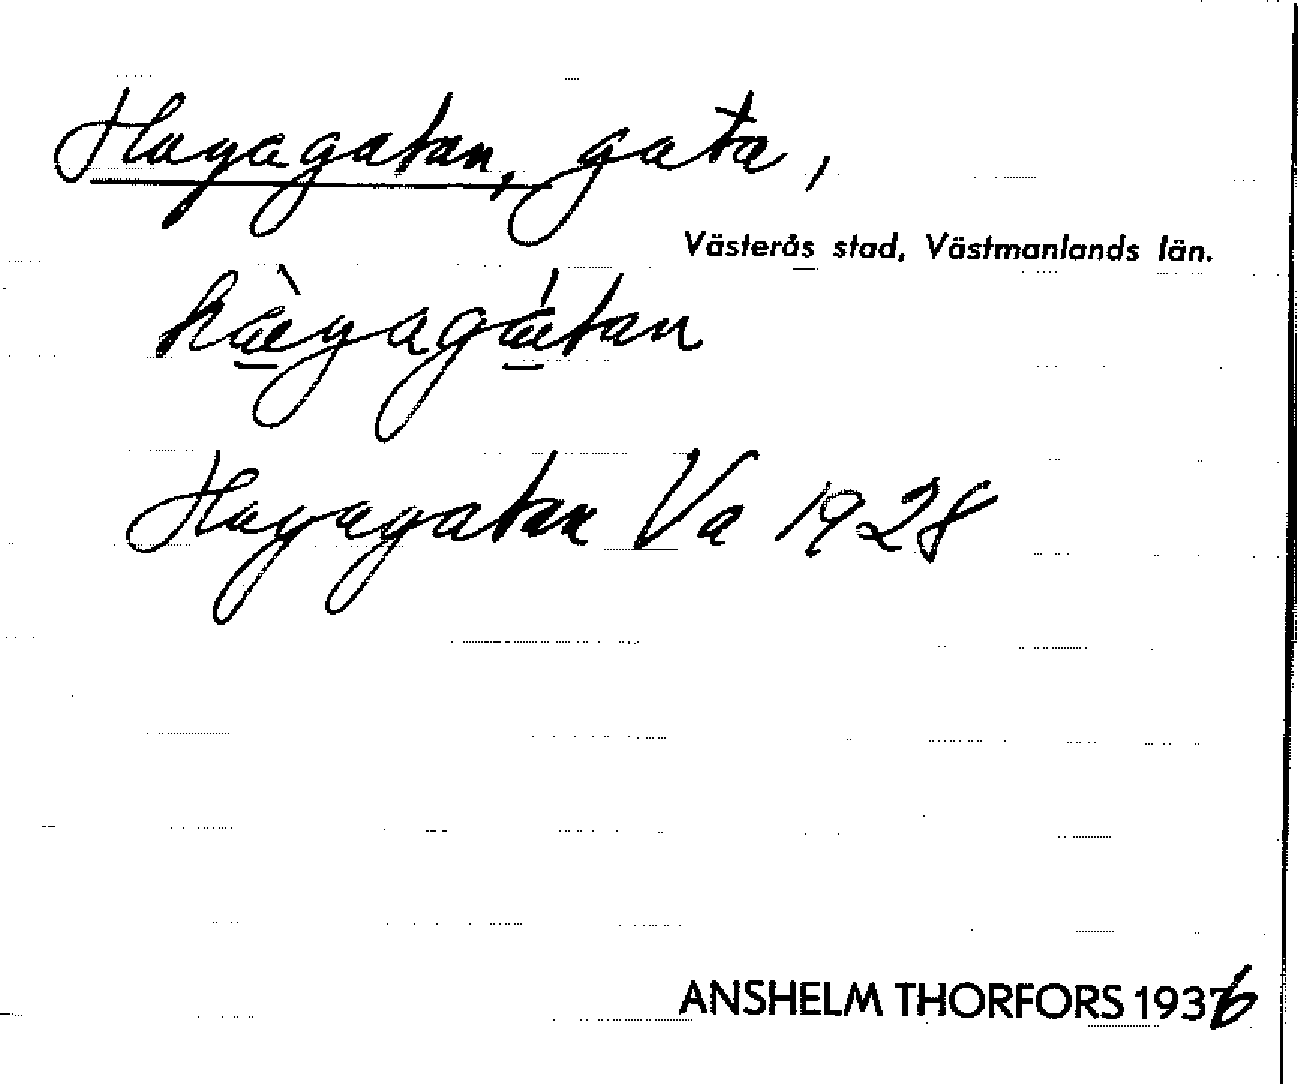 Hagagatan, gata,
Västerås stad, Västmanlands län.
hàgagátan
Hagagatan Va 1928
ANSHELM THORFORS 1936